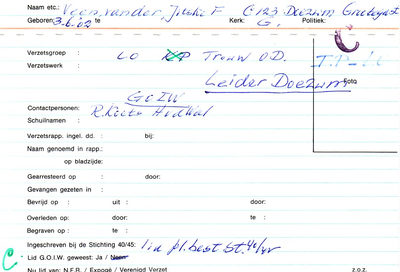 Naam etc.: Veen, van der, Jitske F C 123 Doezum, Grootegast
Geboren: 3.6.02 te Kerk: G. Politiek:
Verzetsgroep : LO KP Trouw O.D.
Verzetswerk : Leider Doezum
Foto
G.O.I.W
Contactpersonen:
Schuilnamen :
Verzetsrapp. ingel. dd. : bij:
Naam genoemd in rapp.:
op bladzijde:
Gearresteerd op : door:
Gevangen gezeten in :
Bevrijd op : uit : door:
Overleden op: door: te :
Begraven op : te :
Ingeschreven bij de Stichting 40/45: lid pl. best St. 40/45
Lid G.O.I.W. geweest: Ja / Neen
Nu lid van: N.F.R. / Expogé / Verenigd Verzet z.o.z.